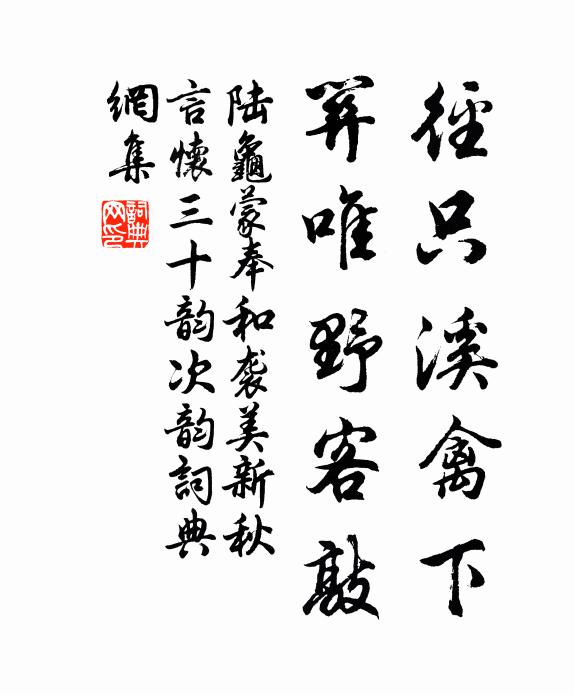 徑只溪禽下
关唯野客敲
陸龜蒙奉和袭美新秋
言懷三十韵次韵詞典
網集
詞典
网印